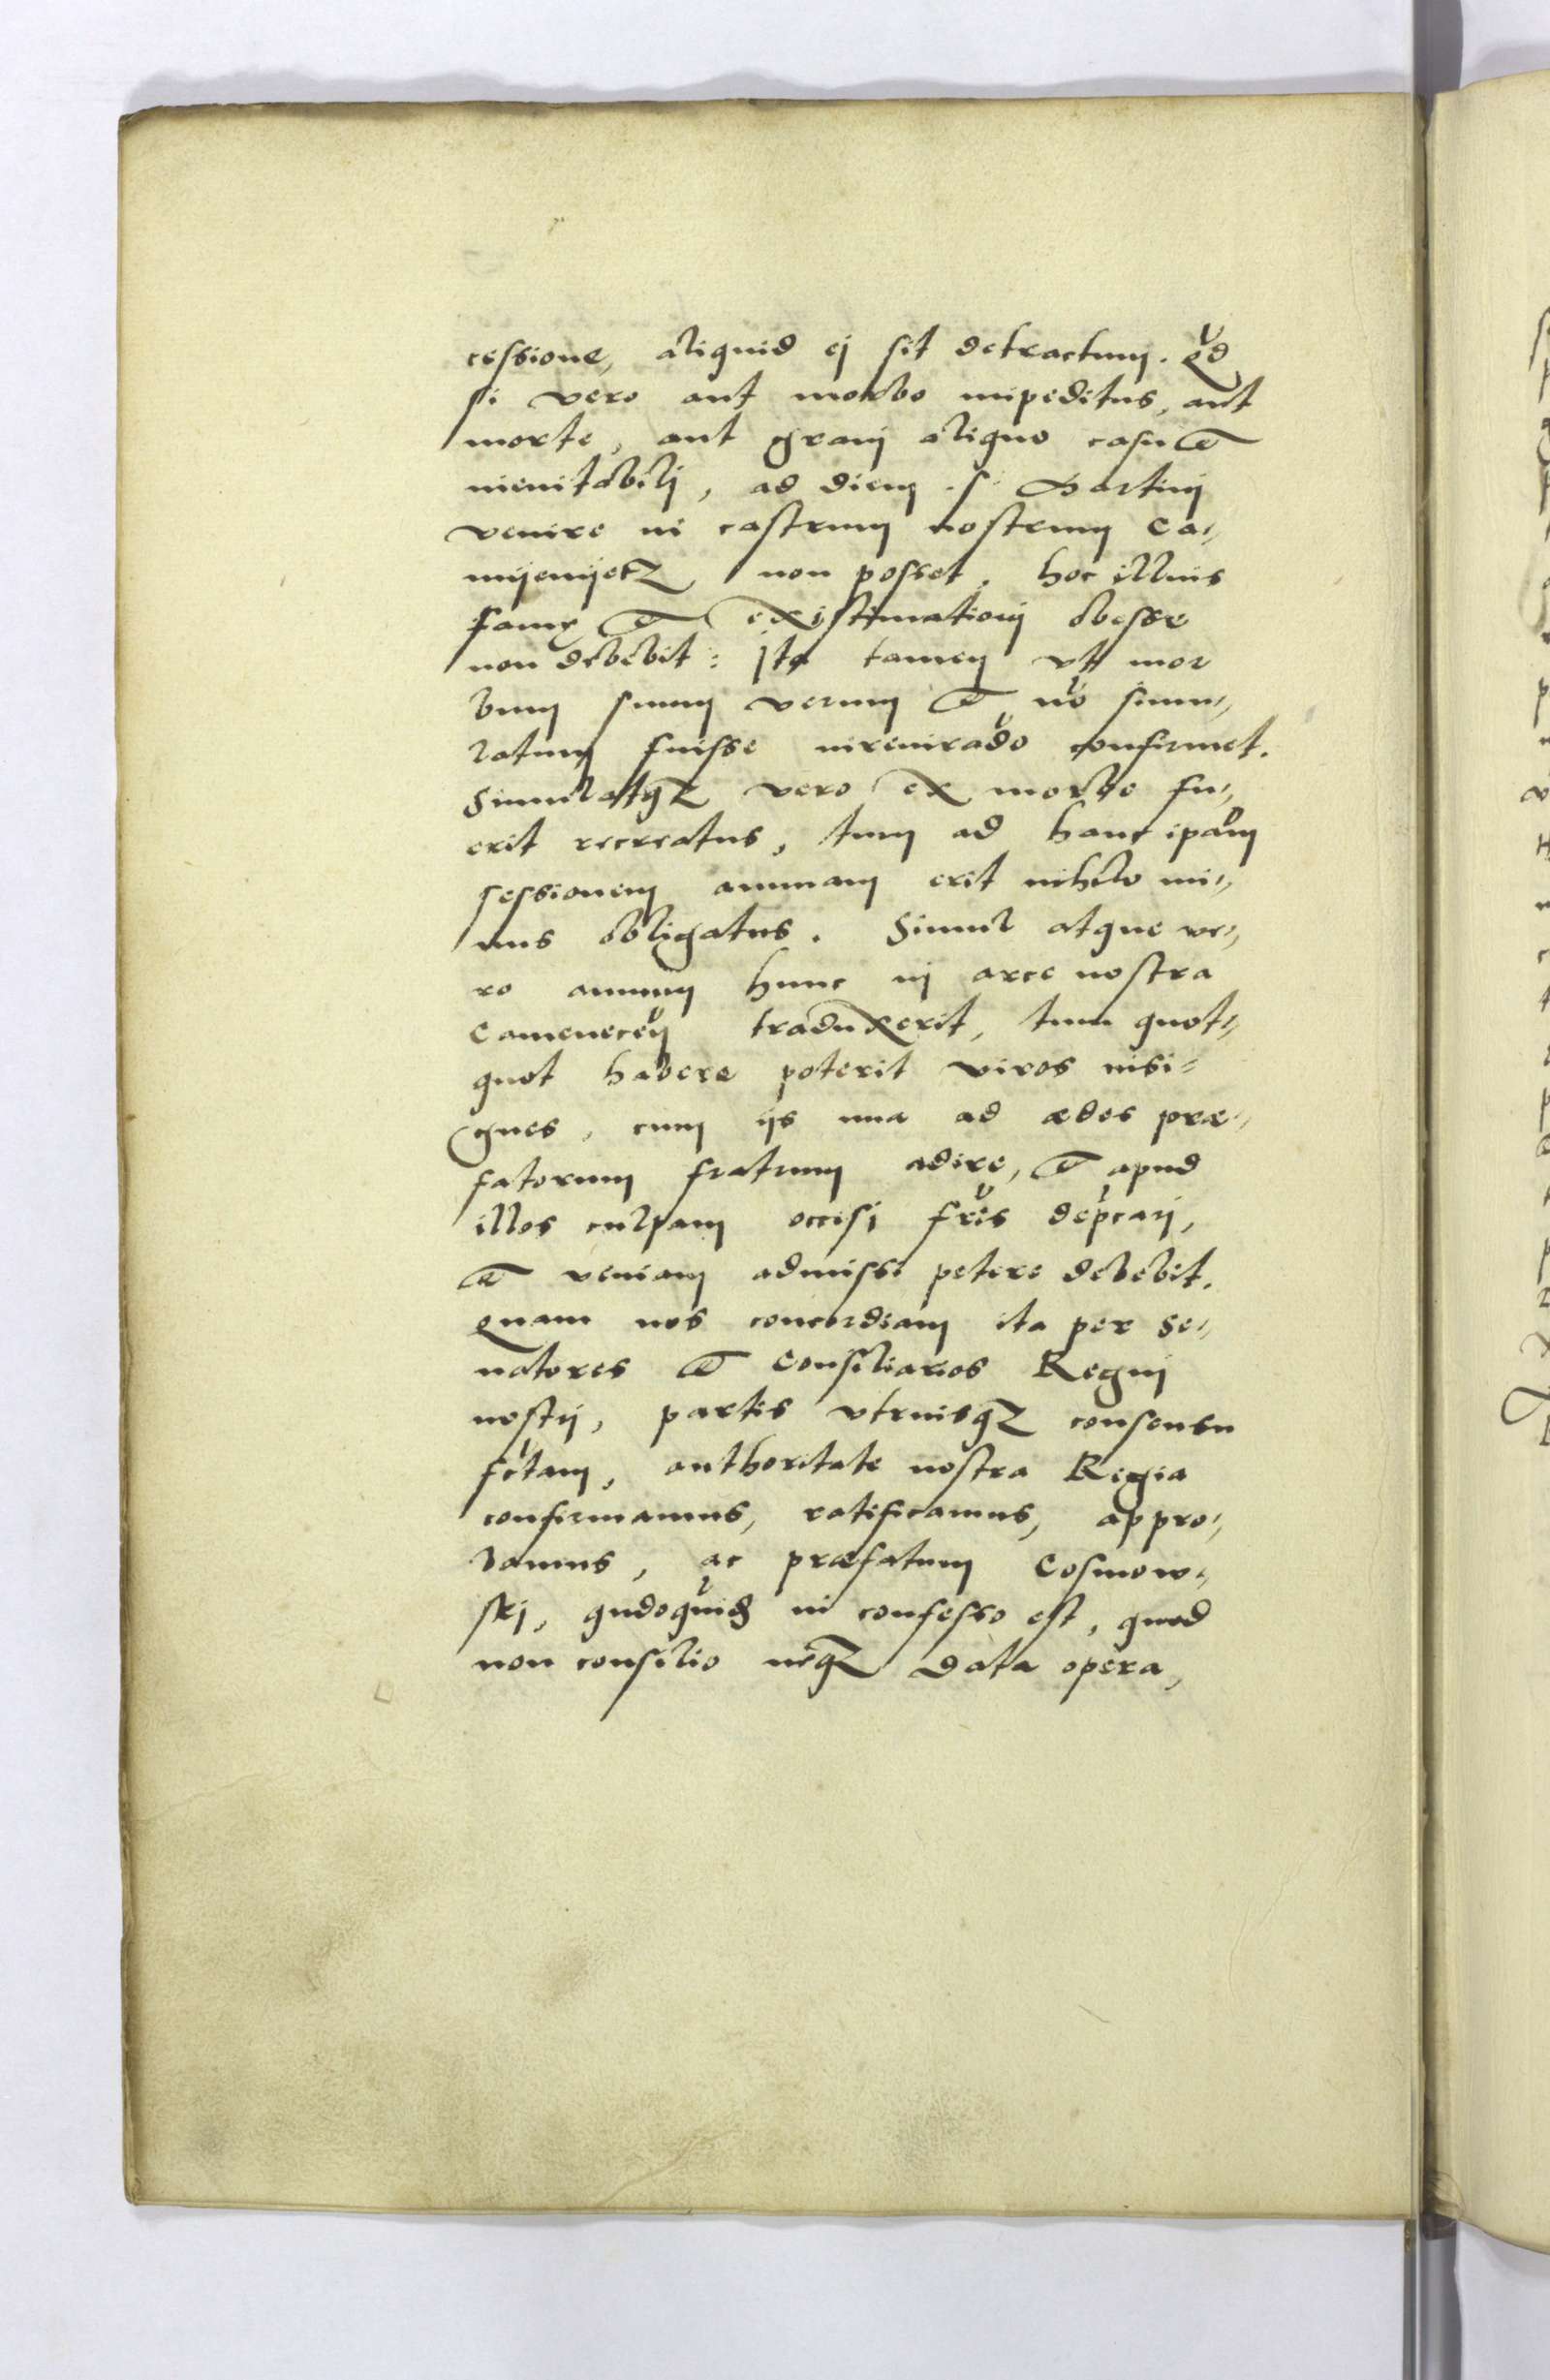 cessione, aliquid ej sit detractum. Qd
si vero aut morbo impeditus, aut
morte, aut gravj aliquo casu et
inevitabilj, ad diem .S. Martinj
venire in castrum nostrum Ca-
mijenijecz non posset, hoc illius
famę et existimationj obesse
non debebit: Ita tamen vtj mor
bum suum verum et nō simu-
latum fuisse iureiurādo confirmet.
Simulatqz vero ex morbo fu-
erit recreatus, tum ad hanc ipam
sessionem annuam erit nihilo mi-
nus obligatus. Simul atque ve-
ro annum hunc in arce nostra
Camenecen traduxerit, tum quot-
quot habere poterit viros insi-
gnes, cum ijs una ad ædes præ-
fatorum fratrum adire, et apud
illos culpam occisj fris depcarj,
et veniam admissi petere debebit.
Quam nos concordiam ita per Se-
natores et Consiliarios Regnj
nostrj, partis vtriusqz consensu
fctam, authoritate nostra Regia
confirmamus, ratificamus, appro-
bamus, ac præfatum Cosmow-
skj, qndoquid in confesso est, quod
non consilio neqz data opera,